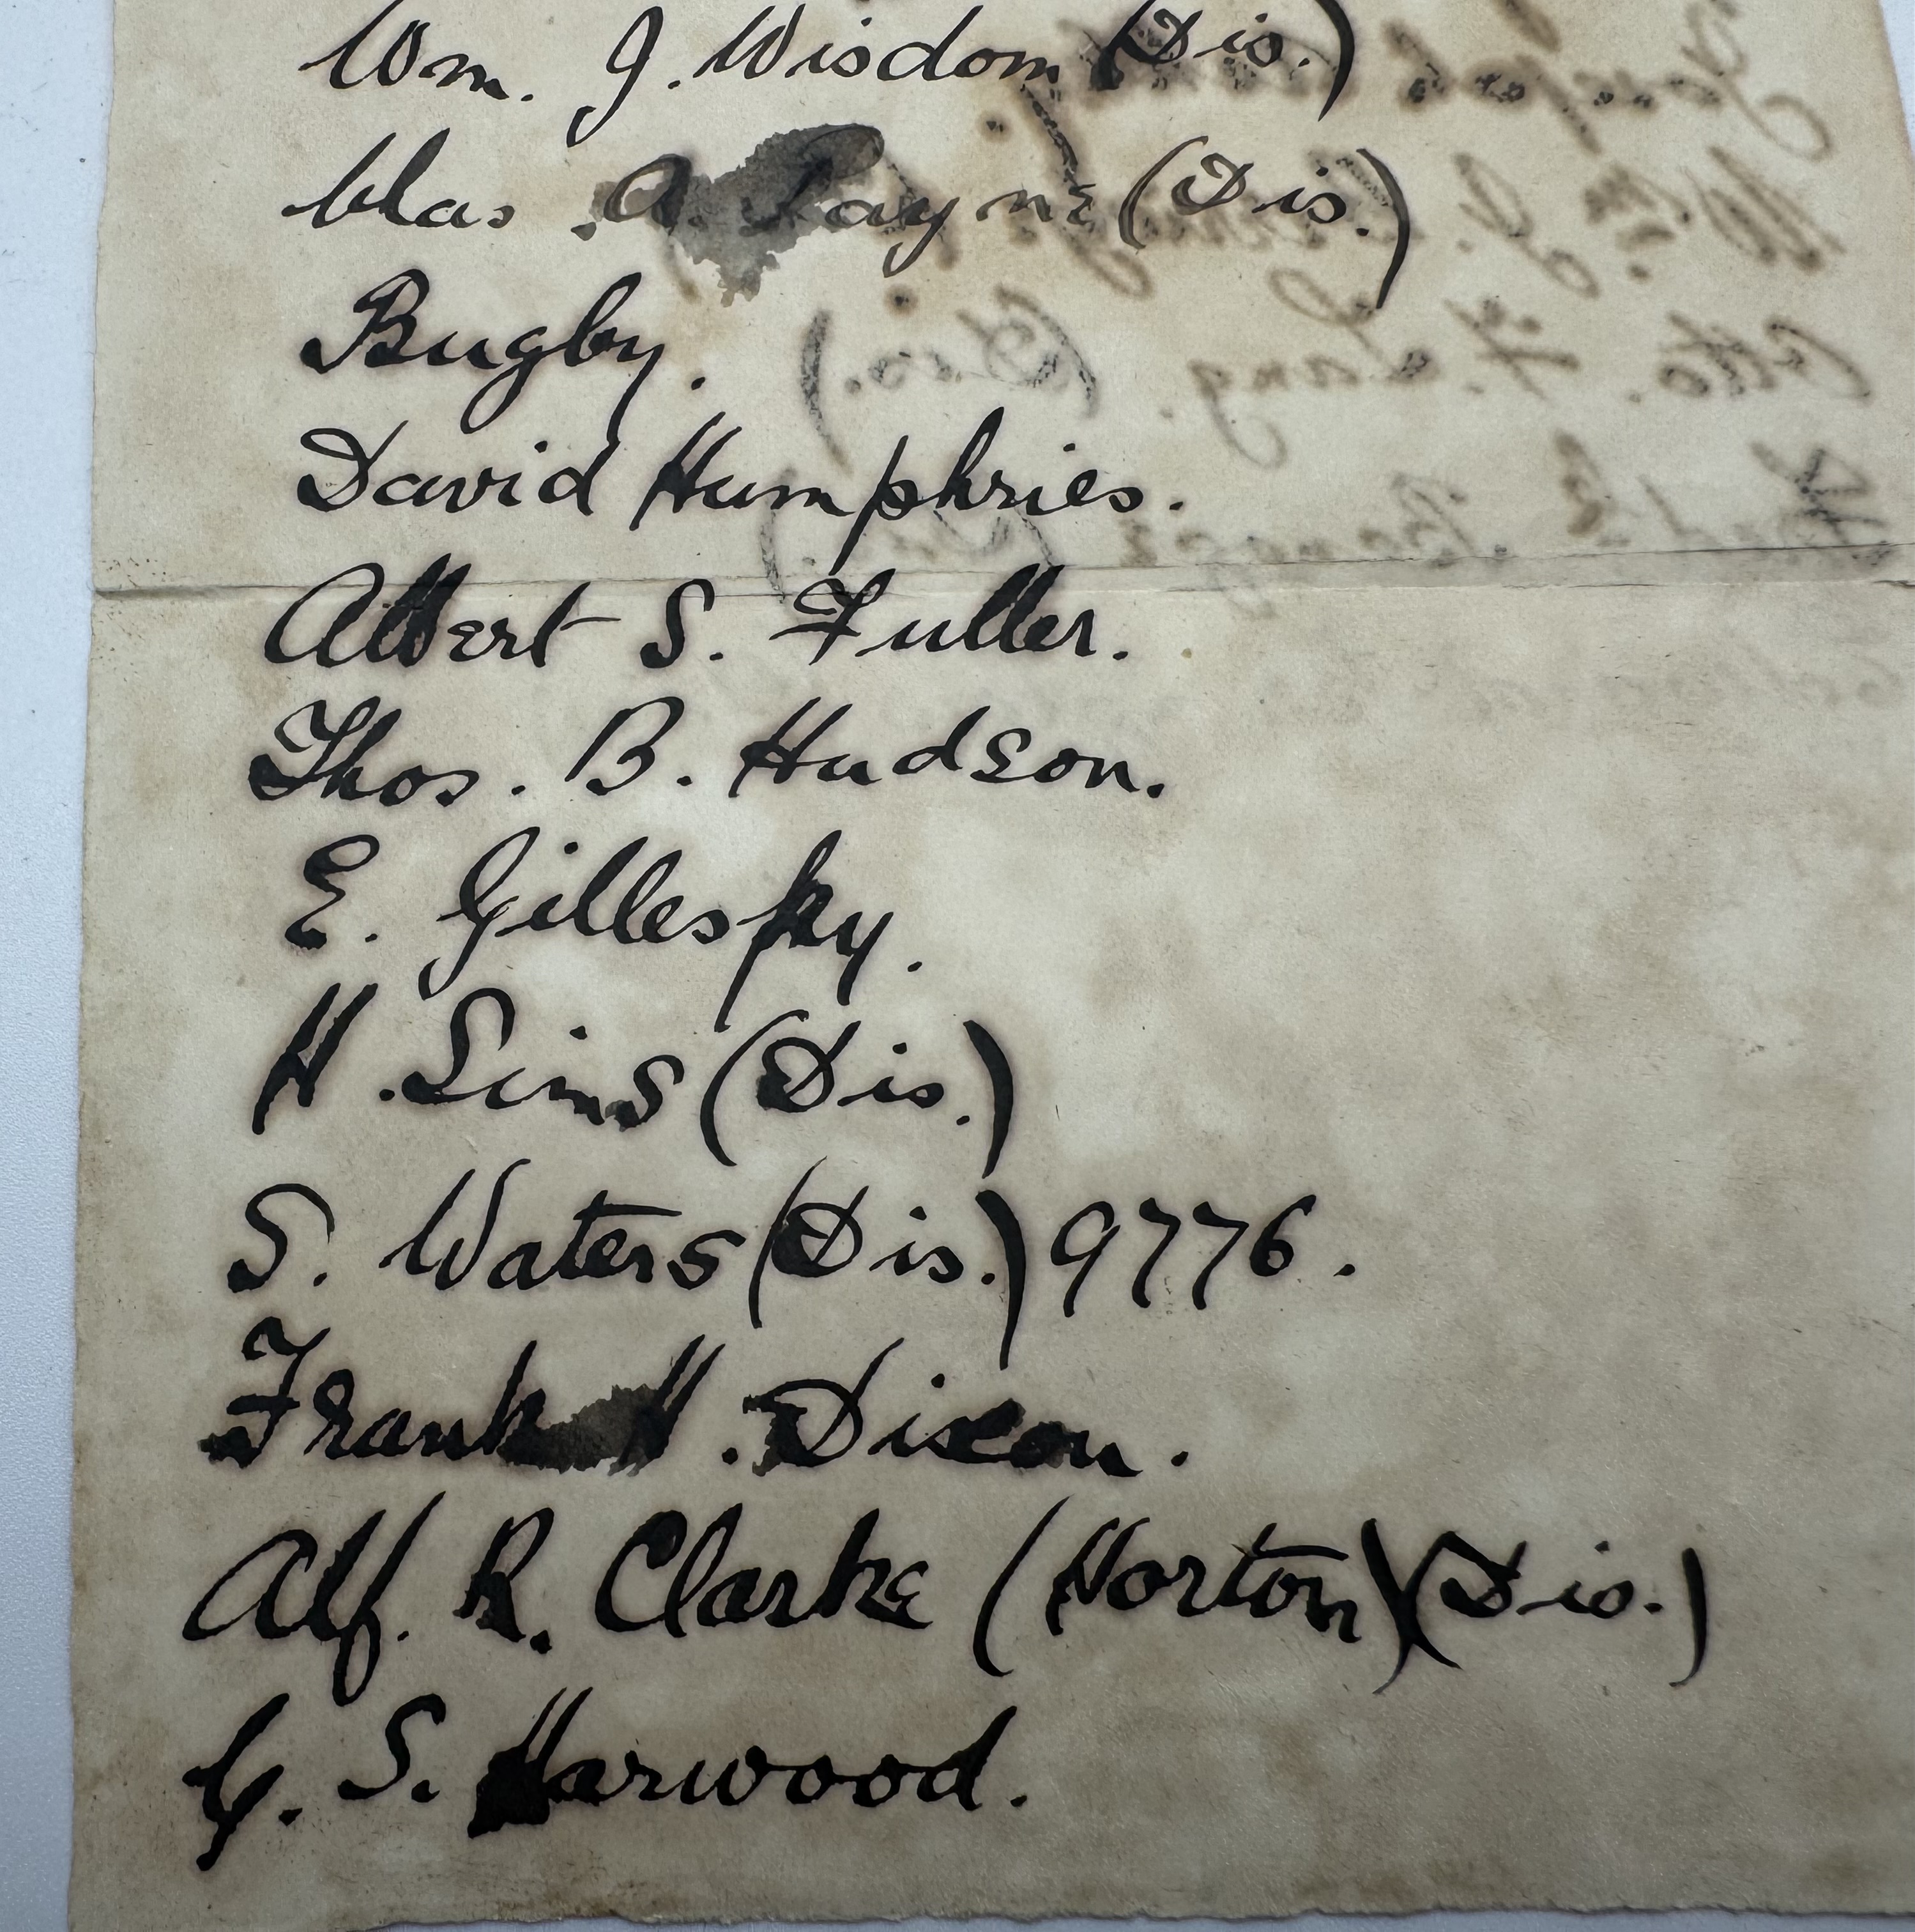 Wm. J. Wisdom (Dis.)
Chas. A. Payne (Dis.)
Bugby.
David Humphries.
Albert S. Fuller.
Thos. B. Hudson.
E. Gillespy.
H. Sims (Dis.)
S. Waters (Dis.) 9776.
Frank H. Dixon.
Alf. R. Clarke (Horton) (Dis.)
G. S. Harwood.